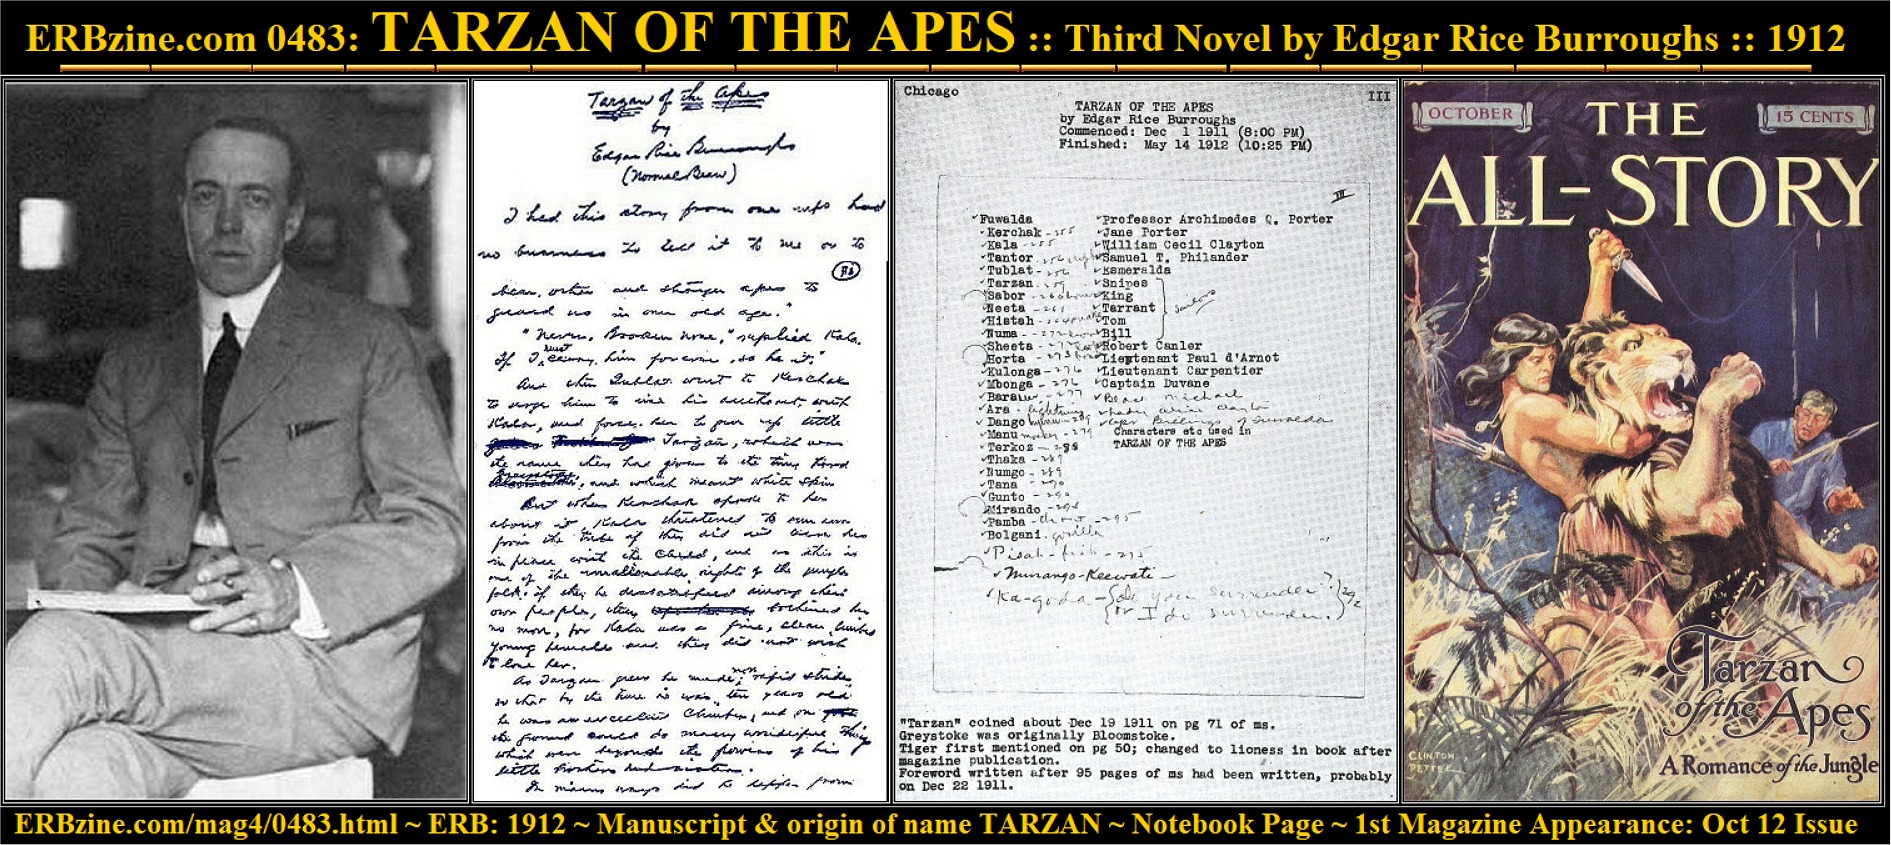 ERBzine.com 0483: TARZAN OF THE APES :: Third Novel by Edgar Rice Burroughs :: 1912
Tarzan of the Apes
by
Edgar Rice Burroughs
(Normal Bean)
I had this story from one who had
no business to tell it to me or to
bear, other and stronger apes to
guard us in our old age."
"Never, Broken Nose," replied Kala.
"If I must carry him forever, so be it."
And then Tublat went to Kerchak
to urge him to use his authority with
Kala, and force her to give up little
Tarzan, which was
the name they had given to the tiny Lord
, and which meant white skin
But when Kerchak spoke to her
about it Kala threatened to run away
from the tribe if they did not leave her
in peace with the child, and as this is
one of the unalienable rights of the jungle
folk if they be dissatisfied among their
own people, they bothered her
no more, for Kala was a fine, clean limbed
young female and they did not wish
to lose her.
As Tarzan grew he made more rapid strides
so that by the time he was ten years old
he was an excellent climber, and on
the ground could do many wonderful things
which were beyond the powers of his
little brothers and sisters.
In many ways did he differ from
Chicago
III
TARZAN OF THE APES
by Edgar Rice Burroughs
Commenced: Dec 1 1911 (8:00 PM)
Finished: May 14 1912 (10:25 PM)
III
Fuwalda Professor Archimedes Q. Porter
Kerchak - 255 Jane Porter
Kala - 255 William Cecil Clayton
Tantor Samuel T. Philander
Tublat - 256 Esmeralda
Tarzan Snipes
Sabor King sailors
Neeta Tarrant
Histah Tom
Numa Bill
Sheeta Robert Canler
Horta Lieutenant Paul d'Arnot
Kulonga - 276 Lieutenant Carpentier
Mbonga - 276 Captain Duvane
Bara - 277 Black Michael
Ara - lightning Lady Alice Clayton
Dango Capt Billings of Fuwalda
Manu Characters etc used in
Terkoz TARZAN OF THE APES
Thaka - 289
Numgo - 289
Tana - 290
Gunto - 290
Mirando
Pamba - 295
Bolgani. gorilla
Pisah - fish - 295
Munango-Keewati -
Ka-goda - {do you surrender?} 292
{or I do surrender.}
"Tarzan" coined about Dec 19 1911 on pg 71 of ms.
Greystoke was originally Bloomstoke.
Tiger first mentioned on pg 50; changed to lioness in book after
magazine publication.
Foreword written after 95 pages of ms had been written, probably
on Dec 22 1911.
OCTOBER
15 CENTS
THE
ALL-STORY
Tarzan
of the Apes
A Romance of the Jungle
CLINTON
PETTEE
ERBzine.com/mag4/0483.html ~ ERB: 1912 ~ Manuscript & origin of name TARZAN ~ Notebook Page ~ 1st Magazine Appearance: Oct 12 Issue